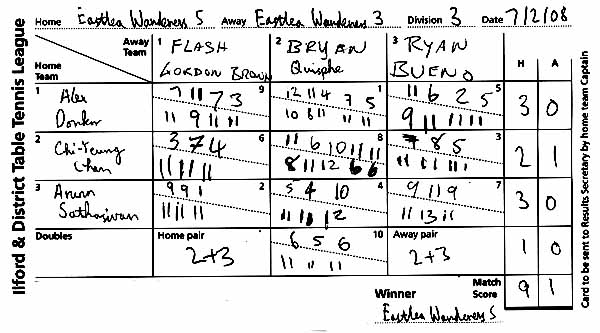 Ilford & District Table Tennis League
Home Eastlea Wanderers 5 Away Eastlea Wanderers 3 Division 3 Date 7/2/08
Home Team Away Team 1 FLASH GORDON BROWN 2 BRYAN Quisphe 3 RYAN BUENO H A
1 Alex Donkor 7 11 7 3 9 12 11 4 7 5 1 11 6 2 5 5 3 0
11 9 11 11 10 8 11 11 11 9 11 11 11 11
2 Chi-Yeung Chan 3 7 4 6 11 6 10 11 11 8 7 8 5 3 2 1
11 11 11 8 11 12 6 6 11 11 11
3 Arunn Sathasivan 9 9 1 2 5 4 10 4 9 11 9 7 3 0
11 11 11 11 11 12 11 13 11
Doubles Home pair 2+3 6 5 6 10 Away pair 2+3 1 0
11 11 11
Winner Eastlea Wanderers 5 Match Score 9 1
Card to be sent to Results Secretary by home team Captain